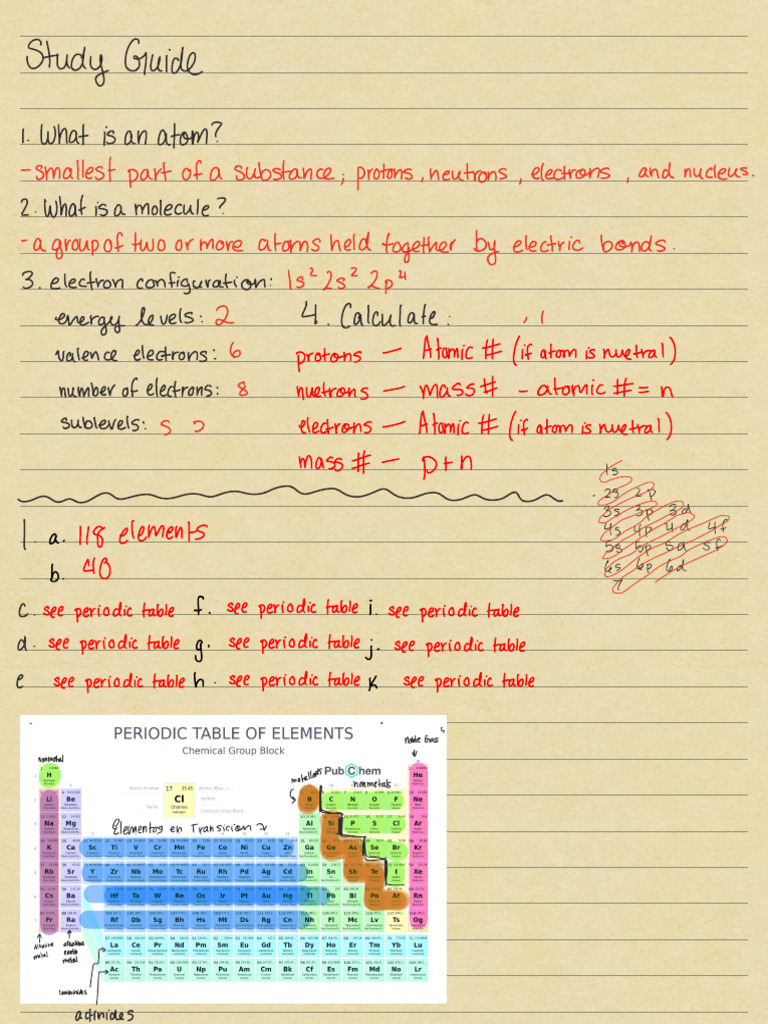 Study Guide
1. What is an atom?
- smallest part of a substance; protons, neutrons, electrons, and nucleus.
2. What is a molecule?
- a group of two or more atoms held together by electric bonds.
3. electron configuration: 1s² 2s² 2p⁴
energy levels: 2
valence electrons: 6
number of electrons: 8
sublevels: s
4. Calculate:
protons — Atomic # (if atom is nuetral)
nuetrons — mass# - atomic # = n
electrons — Atomic # (if atom is nuetral)
mass # — p+n
1s
2s 2p
3s 3p 3d
4s 4p 4d 4f
5s 5p 5d 5f
6s 6p 6d
7
1. a. 118 elements
b. 40
c. see periodic table f. see periodic table i. see periodic table
d. see periodic table g. see periodic table j. see periodic table
e see periodic table h. see periodic table k see periodic table
PERIODIC TABLE OF ELEMENTS
Chemical Group Block
PubChem
nonmetal
metalloids
nonmetals
Noble Gas
17 35.45
Cl
Chlorine
Atomic Number
Name
Symbol
Chemical Group Block
Elementos en Transicion
H He
Li Be B C N O F Ne
Na Mg Al Si P S Cl Ar
K Ca Sc Ti V Cr Mn Fe Co Ni Cu Zn Ga Ge As Se Br Kr
Rb Sr Y Zr Nb Mo Tc Ru Rh Pd Ag Cd In Sn Sb Te I Xe
Cs Ba Hf Ta W Re Os Ir Pt Au Hg Tl Pb Bi Po At Rn
Fr Ra Rf Db Sg Bh Hs Mt Ds Rg Cn Nh Fl Mc Lv Ts Og
La Ce Pr Nd Pm Sm Eu Gd Tb Dy Ho Er Tm Yb Lu
Ac Th Pa U Np Pu Am Cm Bk Cf Es Fm Md No Lr
metal
alkaline earth metal
actinides